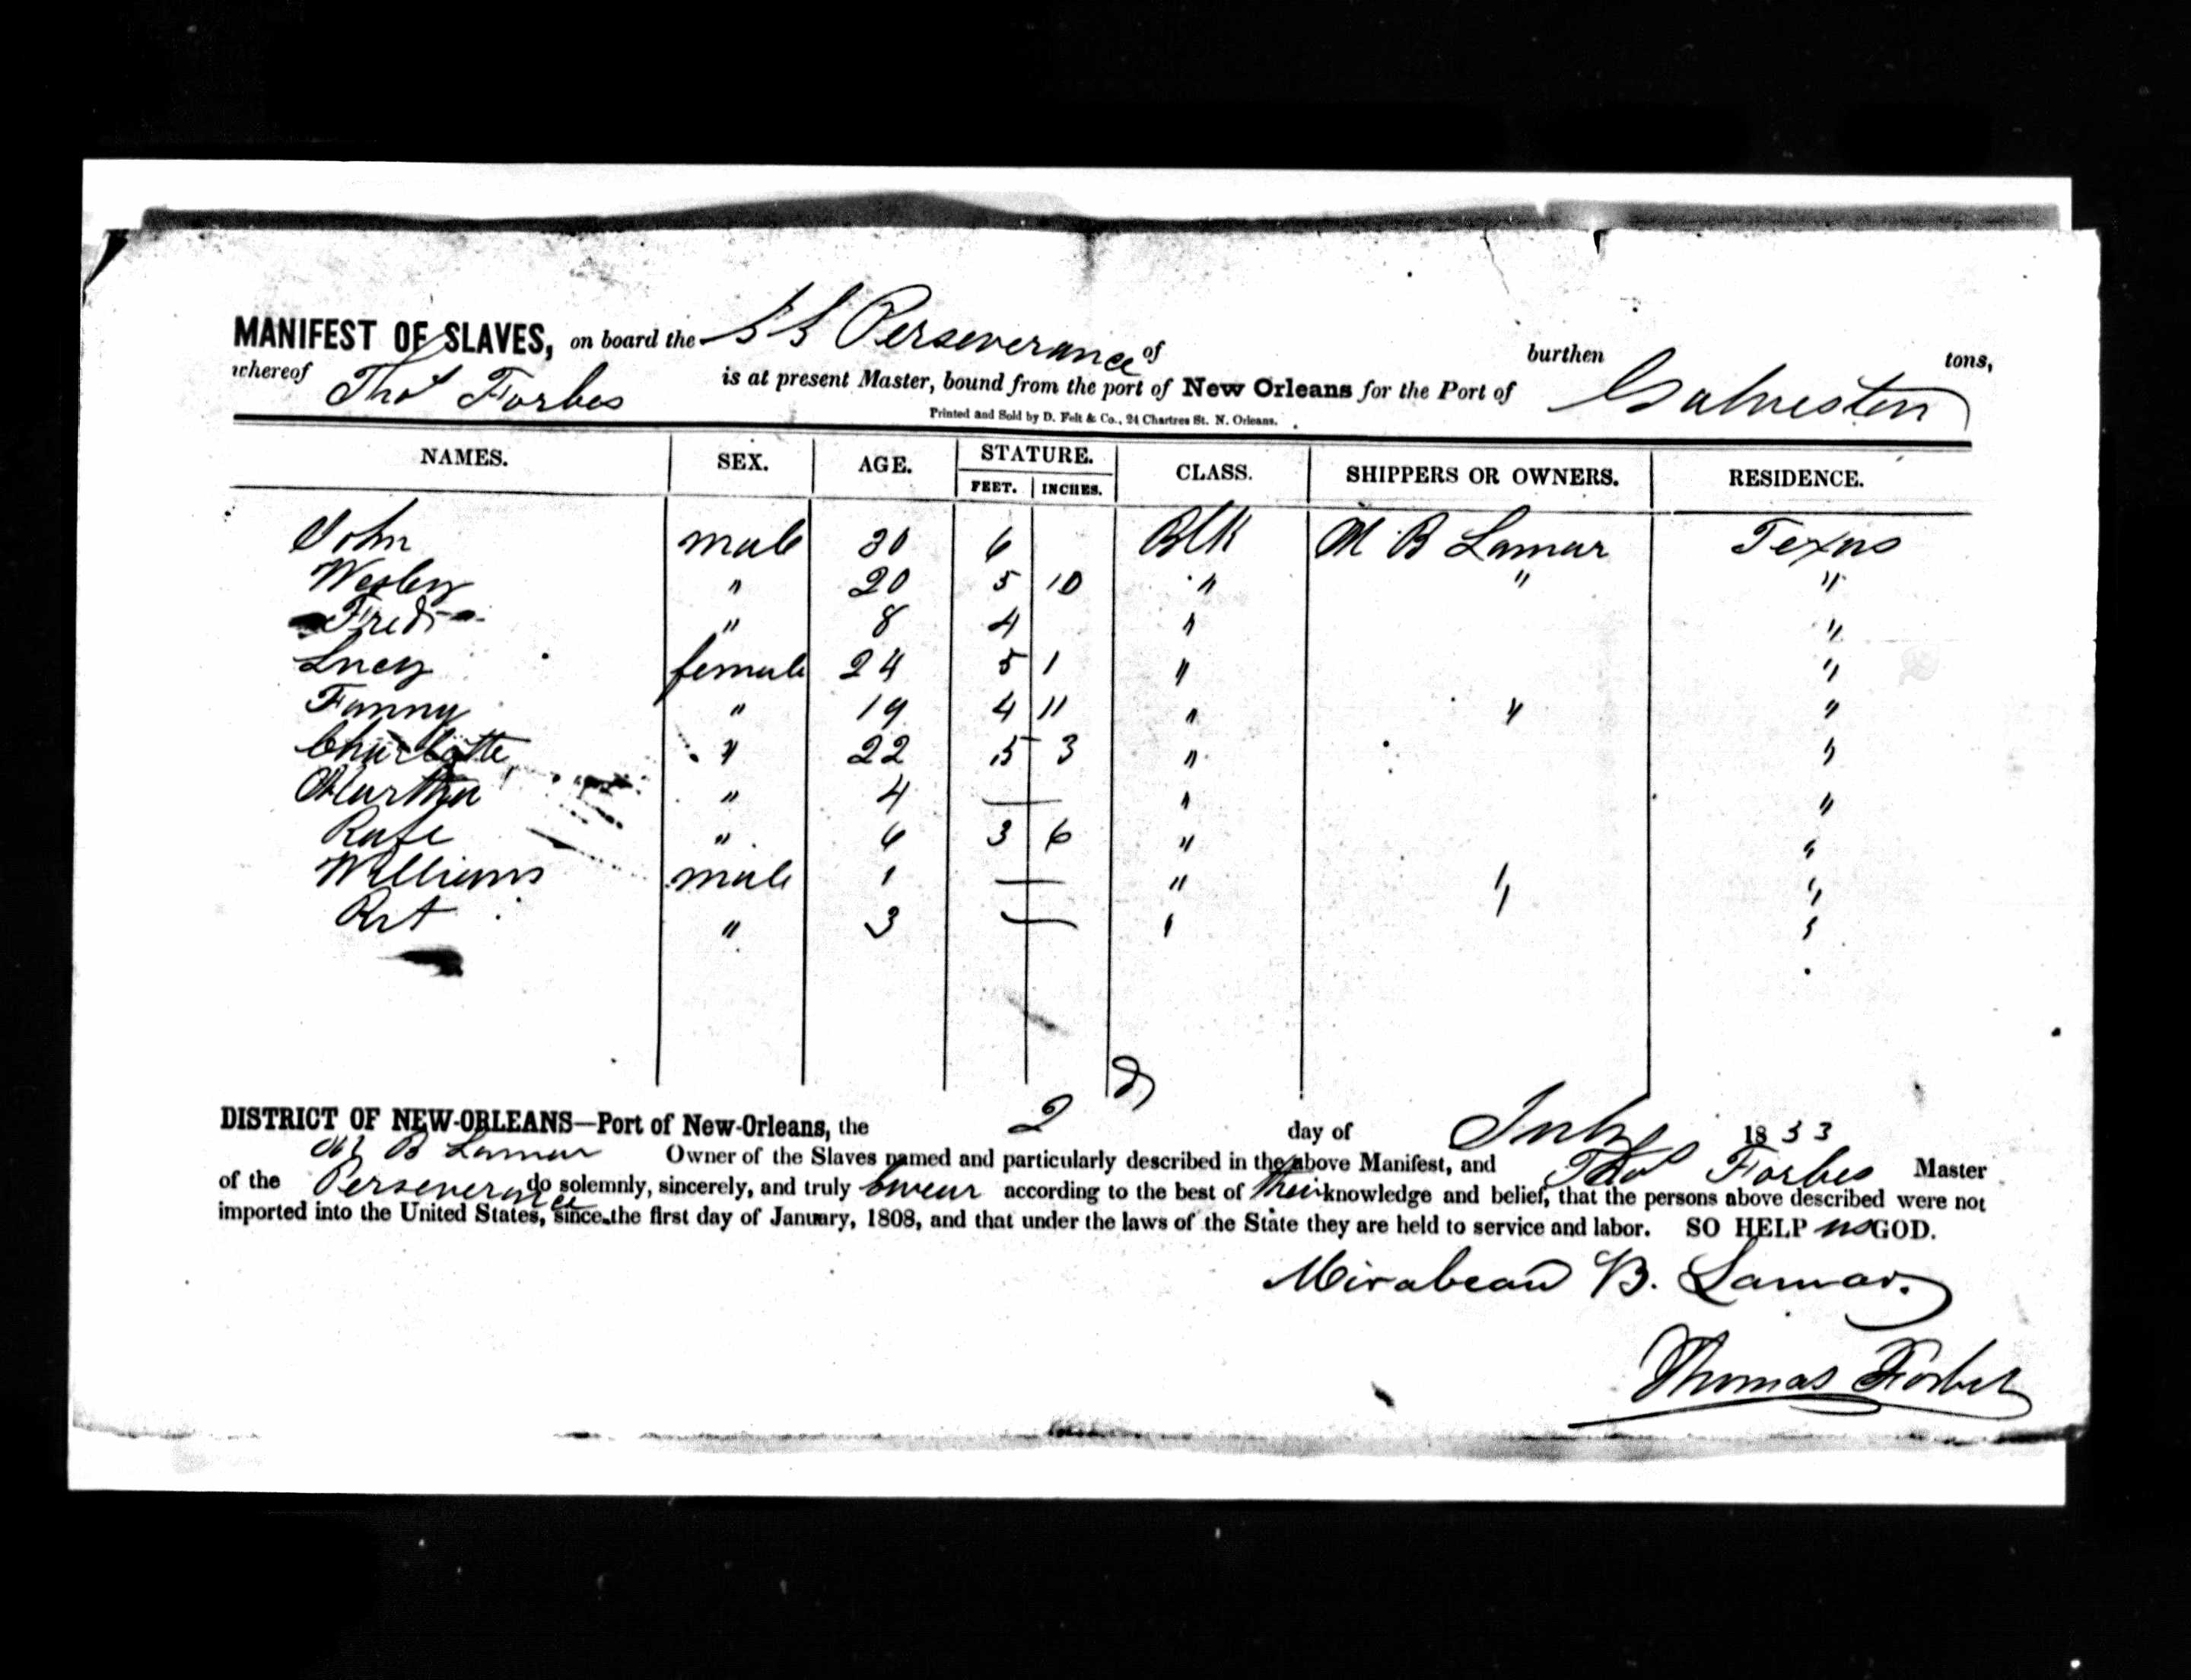 MANIFEST OF SLAVES, on board the S S Perseverance of burthen tons,
whereof Thos Forbes is at present Master, bound from the port of New Orleans for the Port of Galveston
Printed and Sold by D. Felt & Co., 24 Chartres St. N. Orleans.
NAMES. SEX. AGE. STATURE. CLASS. SHIPPERS OR OWNERS. RESIDENCE.
FEET. INCHES.
John male 30 6 Blk M B Lamar Texas
Wesley " 20 5 10 " " "
Fred " 8 4 " "
Lucy female 24 5 1 " "
Fanny " 19 4 11 " " "
Charlotte " 22 5 3 " "
Martha " 4 — " "
" 6 3 6 " "
Williams male 1 — " " "
" 3 — " "
DISTRICT OF NEW-ORLEANS—Port of New-Orleans, the 2 d day of July 1853
M B Lamar Owner of the Slaves named and particularly described in the above Manifest, and Thos Forbes Master
of the Perseverance do solemnly, sincerely, and truly swear according to the best of their knowledge and belief, that the persons above described were not
imported into the United States, since the first day of January, 1808, and that under the laws of the State they are held to service and labor. SO HELP us GOD.
Mirabeau B. Lamar.
Thomas Forbes